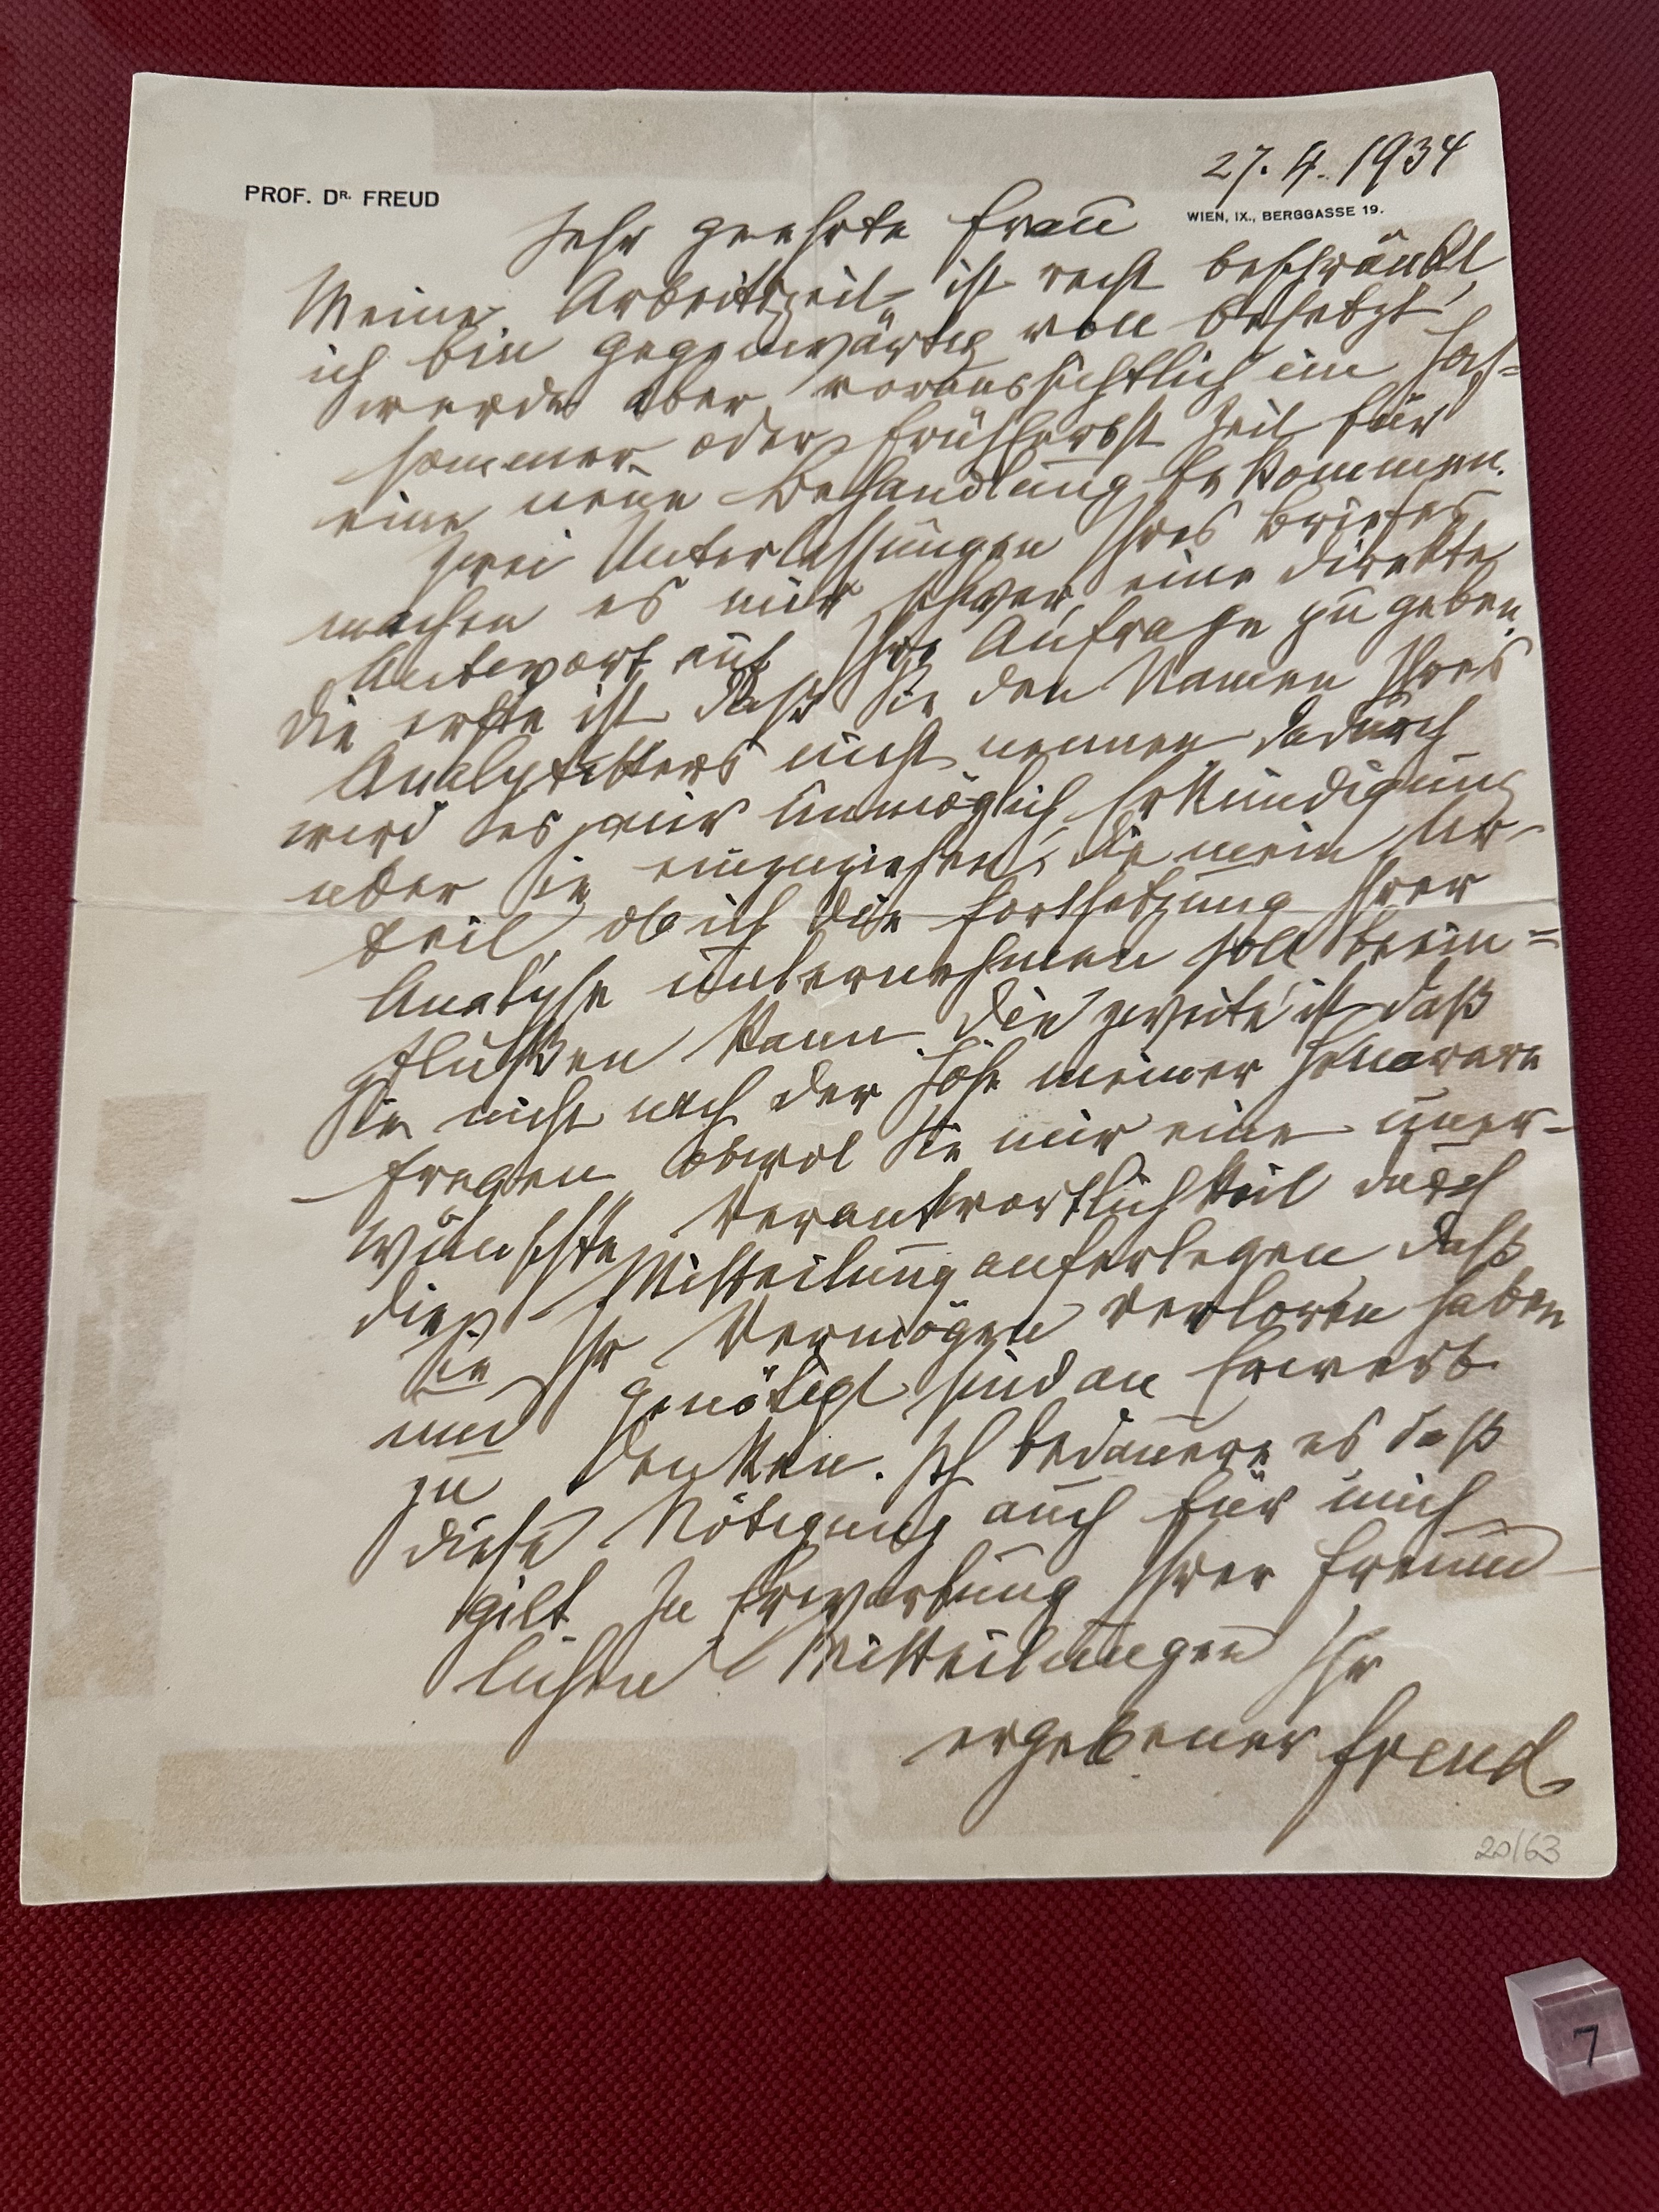 27. 4. 1934
PROF. DR. FREUD
WIEN, IX., BERGGASSE 19.
Sehr geehrte Frau
Meine Arbeitszeit ist recht beschränkt,
ich bin gegenwärtig voll besetzt,
werde aber voraussichtlich im Hoch=
sommer oder Frühherbst Zeit für
eine neue Behandlung bekommen.
Zwei Unterlassungen Ihres Briefes
machen es mir schwer, eine direkte
Antwort auf Ihre Anfrage zu geben.
Die erste ist daß Sie den Namen Ihres
Analytikers nicht nennen dadurch
wird es mir unmöglich, Erkundigung
über Sie einzuziehen, die mein Ur-
teil, ob ich die Fortsetzung Ihrer
Analyse unternehmen soll beein=
flußen kann. Die zweite ist daß
Sie nicht nach der Höhe meiner Honorare
fragen obwol Sie mir eine uner-
wünschte Verantwortlichkeit durch
die Mitteilung auferlegen daß
Sie Ihr Vermögen verloren haben
und genötigt sind an Erwerb
zu denken. Ich bedauere es daß
diese Nötigung auch für mich
gilt. In Erwartung Ihrer freund-
lichen Mitteilungen Ihr
ergebener Freud
20/63
7